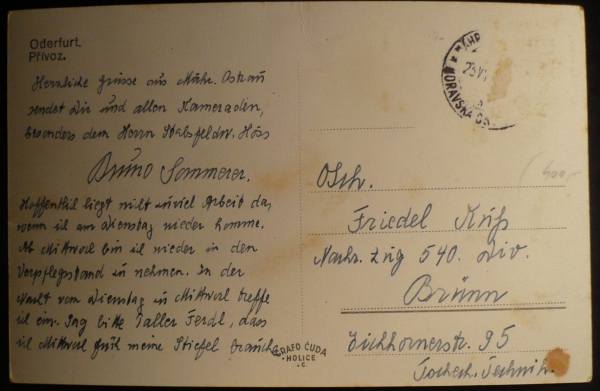 Oderfurt.
Přívoz.
Herzliche Grüsse aus Mähr. Ostrau
sendet Dir und allen Kameraden,
besonders dem Herrn Stabsfeldw. Höss
Bruno Sommerer.
Hoffentlich liegt nicht zuviel Arbeit da,
wenn ich am Dienstag wieder komme.
Ab Mittwoch bin ich wieder in den
Verpflegstand zu nehmen. In der
Nacht vom Dienstag zu Mittwoch treffe
ich ein. Sag bitte Taller Ferdl, dass
ich Mittwoch früh meine Stiefel brauche.
MÄHR
23.VI
MORAVSKÁ OS
400,-
Friedel Kuß
Nachr. Zug 540. Div.
Brünn
Eichhornerstr. 95
Tschech. Technik.
GRAFO ČUDA
HOLICE